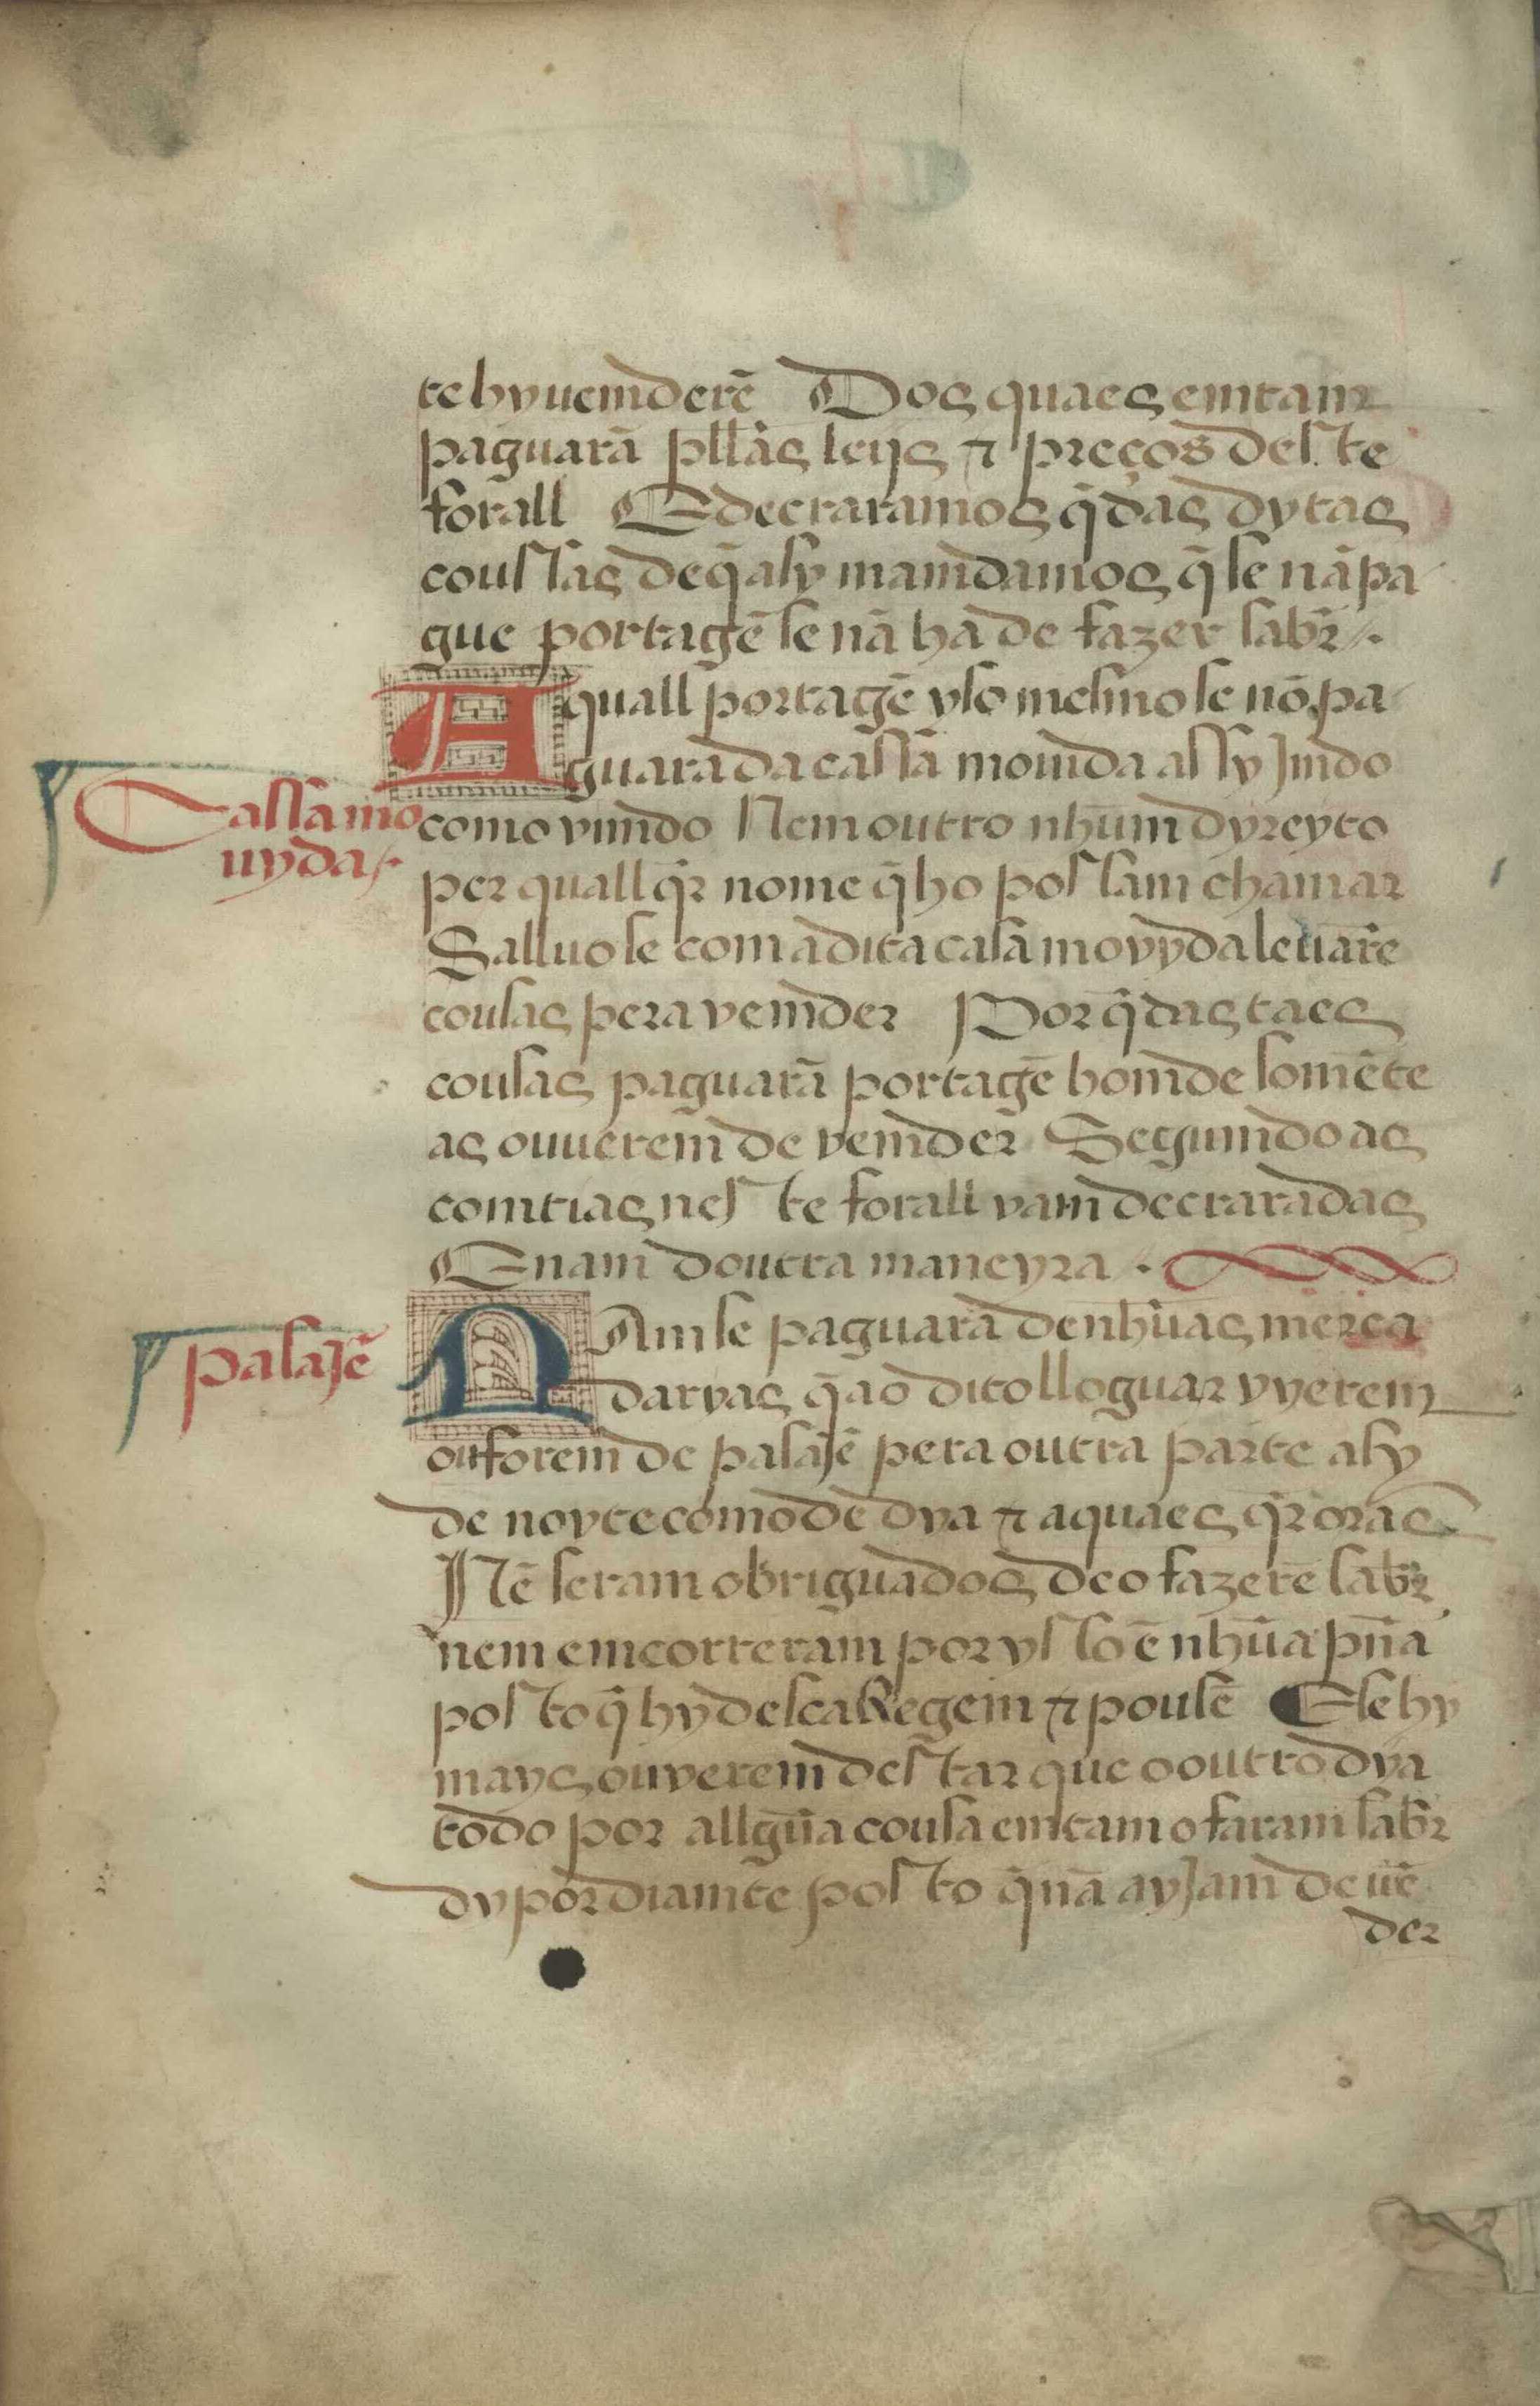 te hy uemderẽ Dos quaes emtam
paguarã pllas leys ⁊ preços deste
forall E decraramos q̃ das dytas
coussas de q̃ asy mamdamos q̃ se nã pa
gue portagẽ se nã ha de fazer sabr̃ /.
A quall portagẽ yso mesmo se nõ pa
guara da cassa mouida assy Jmdo
Cassa mo
uyda /.
como vimdo Nem outro nhũm dyreyto
per quall q̃r nome q̃ ho possam chamar
Salluo se com a dita casa movyda leuarẽ
cousas pera vemder Por q̃ das taes
cousas paguarã portagẽ homde somẽte
as ouuerem de vemder Segumdo as
comtias neste forall vam decraradas
E nam doutra maneyra .
NAm se paguara de nhũas merca
pasajẽ
daryas q̃ ao dito lloguar vyerem
ou forem de pasajẽ pera outra parte asy
de noyte como de dya ⁊ a quaes q̃r oras
Nẽ seram obriguados de o fazerẽ sabr̃
nem emcorreram por ysso ẽ nhũa pña
posto q̃ hy descaRegem ⁊ pousẽ E se hy
mays ouverem destar que o outro dya
todo por allgũa cousa emtam o faram sabr̃
dy por diamte posto q̃ nã ayJam de uẽ
der